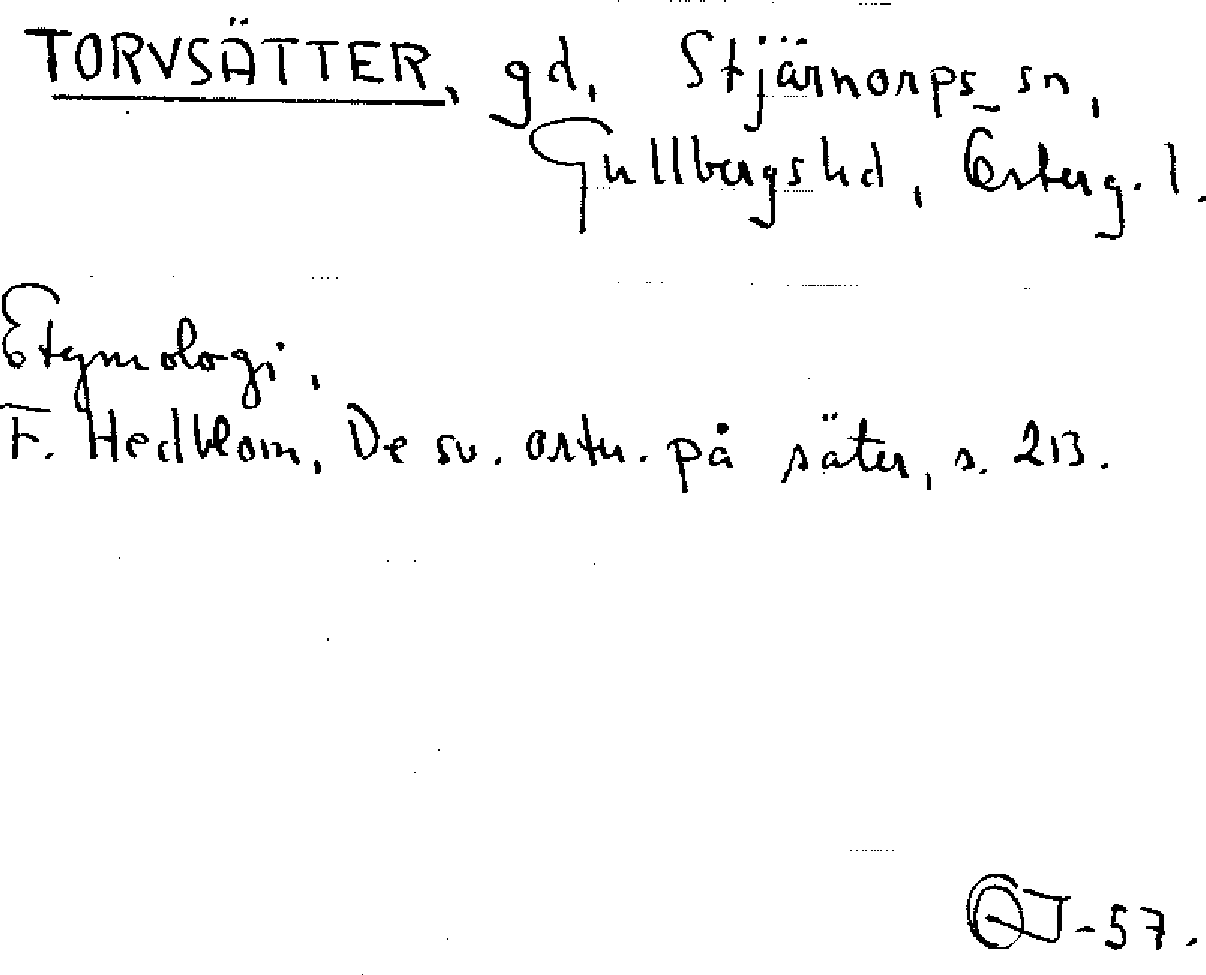 TORVSÄTTER, gd, Stjärnorps sn,
Gullbergs hd, Österg. l.
Etymologi.
F. Hedblom, De sv. ortn. på säter, s. 213.
-57.